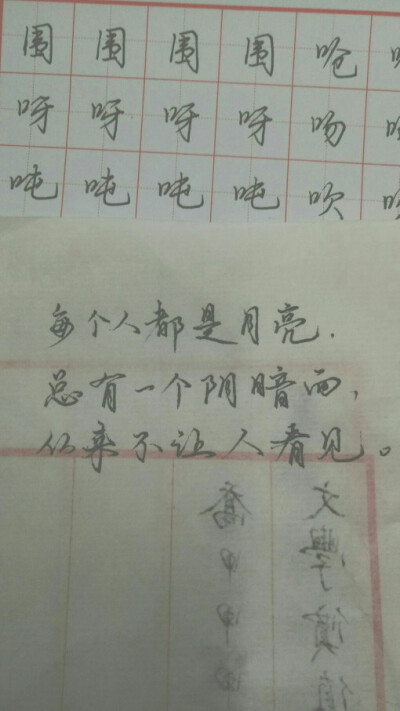 围 围 围 围 呛
呀 呀 呀 呀 吻
吨 吨 吨 吨 吹
每个人都是月亮.
总有一个阴暗面,
从来不让人看见。